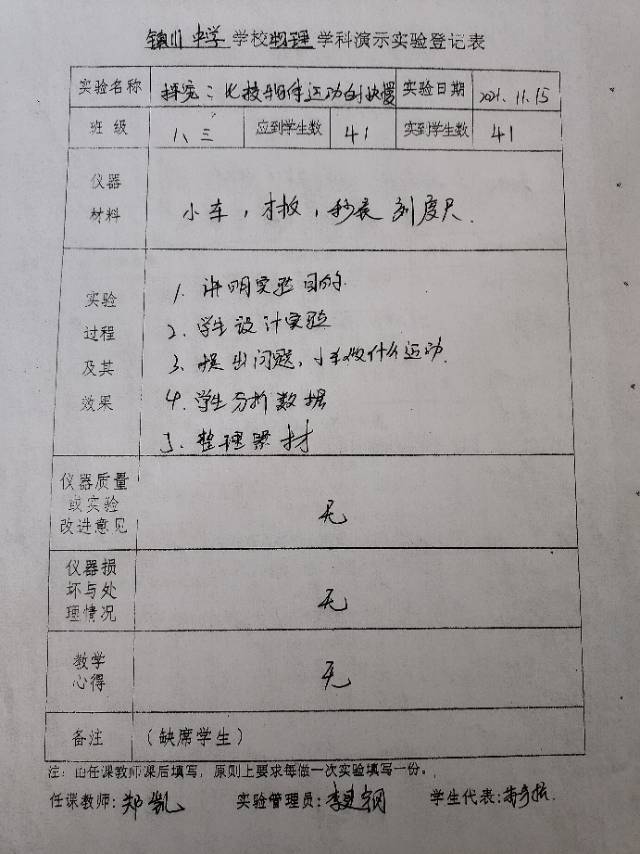 镇川中学学校物理学科演示实验登记表
实验名称 探究：比较物体运动的快慢 实验日期 2021.11.15
班级 八、三 应到学生数 41 实到学生数 41
仪器
材料 小车，木板，秒表 刻度尺.
实验
过程
及其
效果
1. 讲明实验目的.
2. 学生设计实验
3. 提出问题，小车做什么运动.
4. 学生分析数据
5. 整理器材
仪器质量
或实验
改进意见
无
仪器损
坏与处
理情况
无
教学
心得
无
备注 （缺席学生）
注：由任课教师课后填写，原则上要求每做一次实验填写一份。
任课教师：郑凯 实验管理员：李建钢 学生代表：